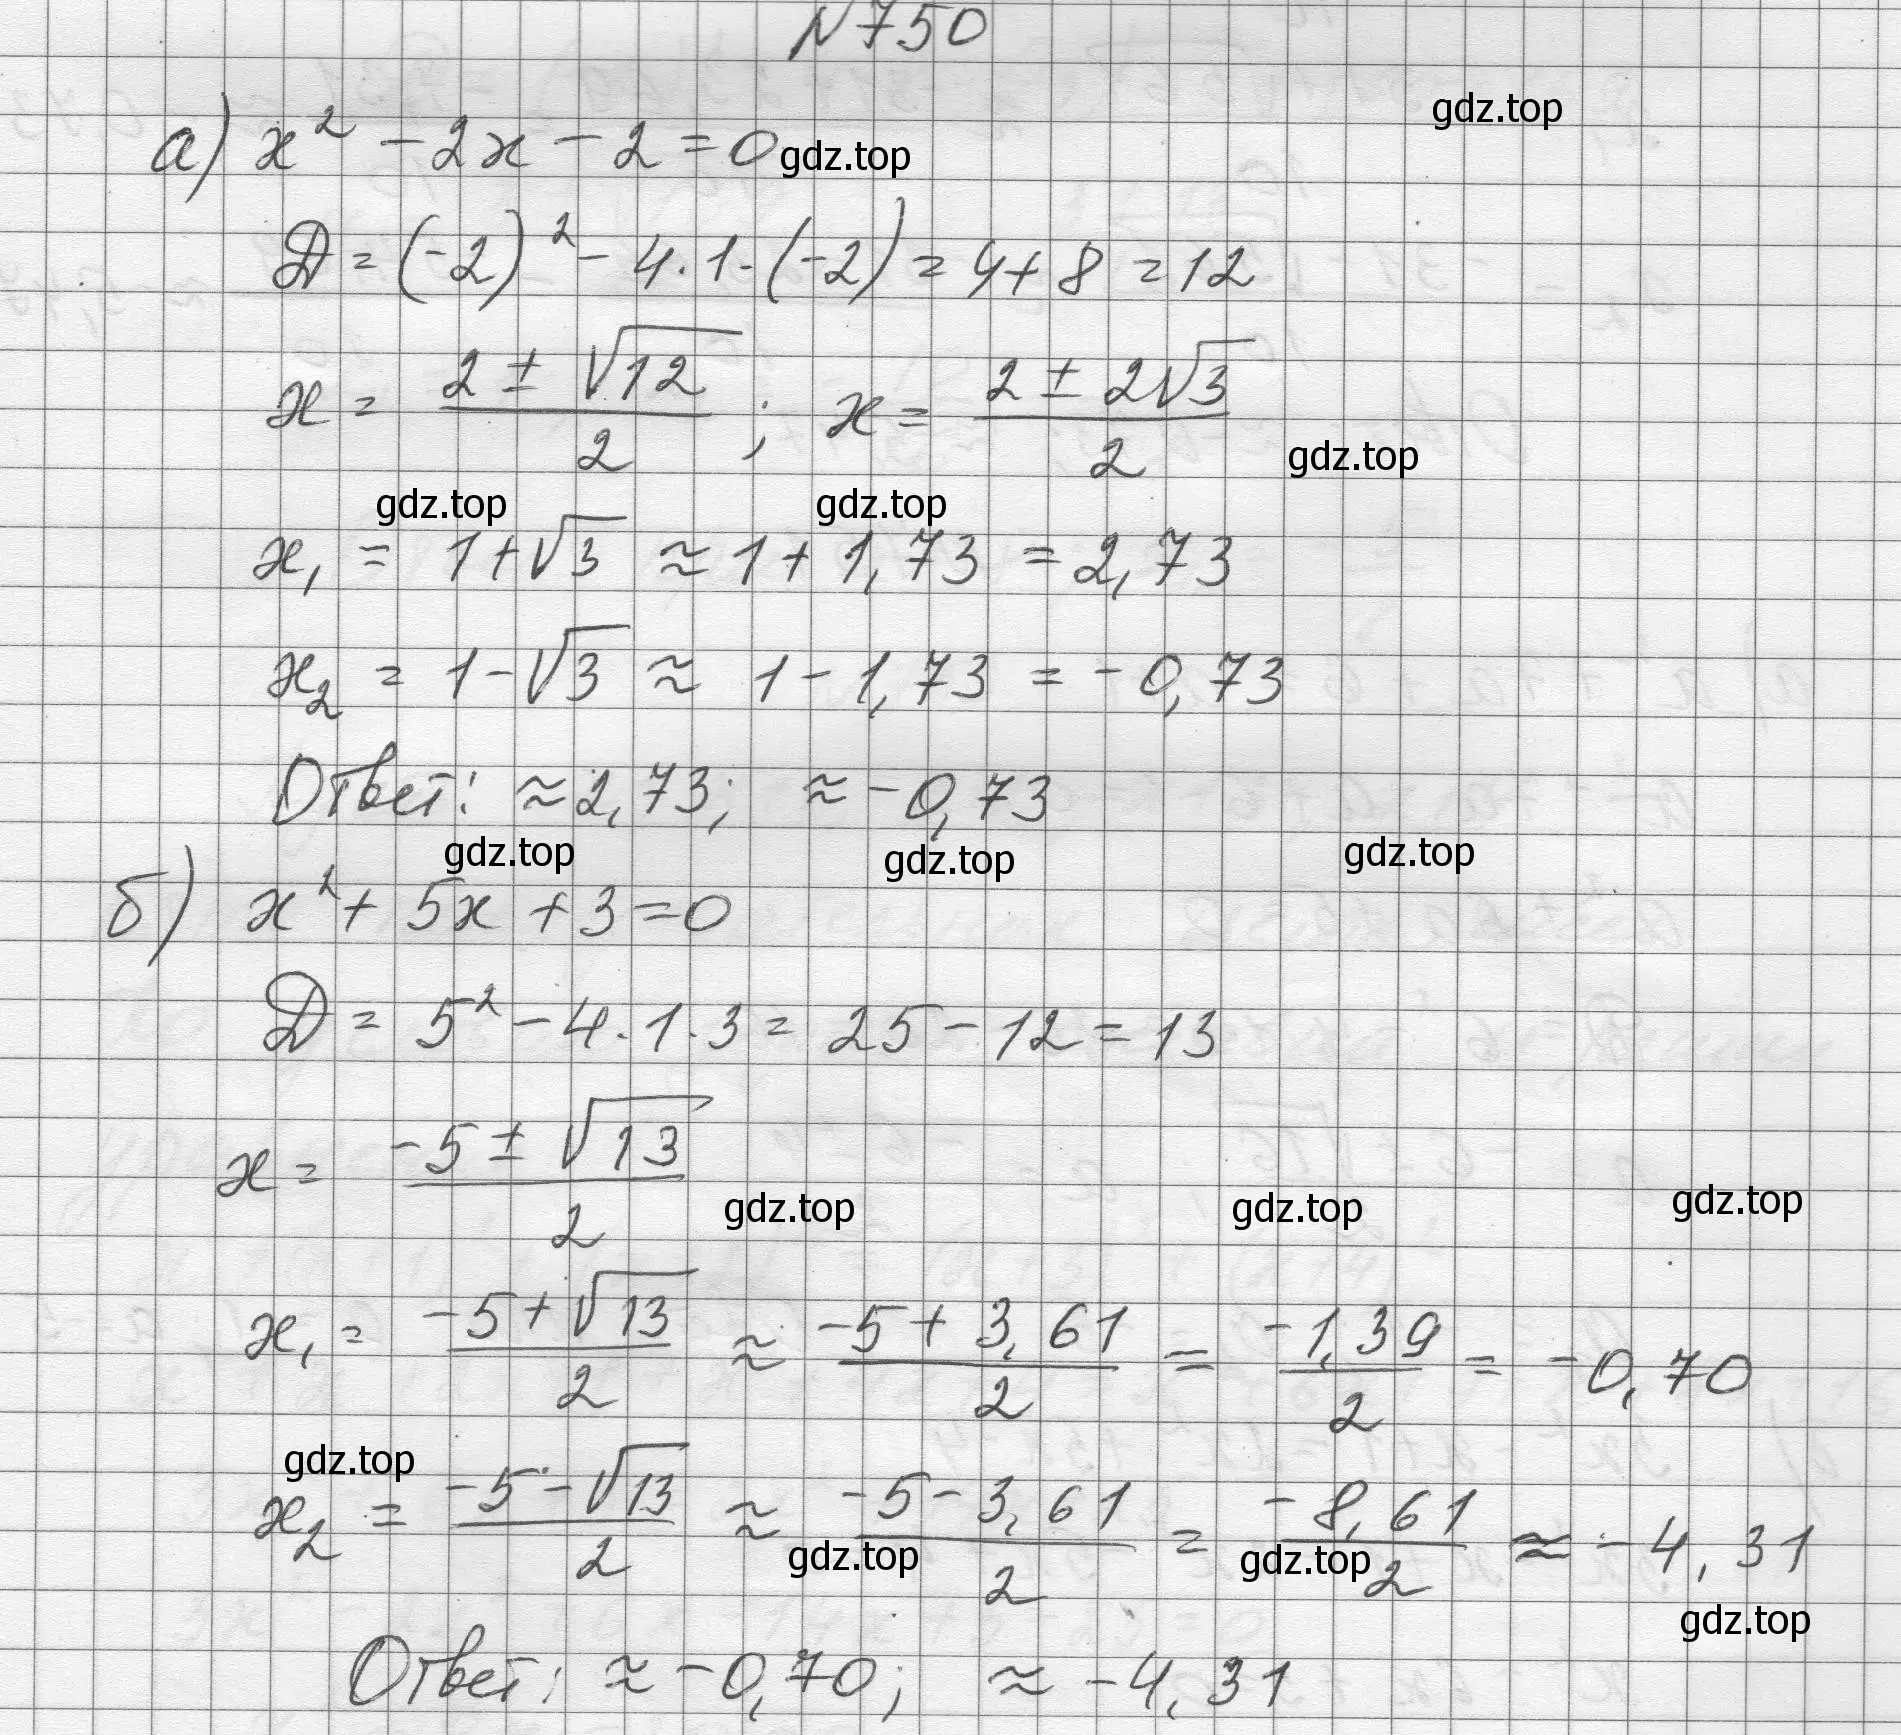 N 750
gdz.top
а) x² - 2x - 2 = 0 gdz.top
D = (-2)² - 4·1·(-2) = 4 + 8 = 12
x = (2 ± √12)/2 ; x = (2 ± 2√3)/2
gdz.top
gdz.top gdz.top
x₁ = 1 + √3 ≈ 1 + 1,73 = 2,73
x₂ = 1 - √3 ≈ 1 - 1,73 = -0,73
Ответ: ≈ 2,73; ≈ -0,73
gdz.top gdz.top gdz.top
б) x² + 5x + 3 = 0
D = 5² - 4·1·3 = 25 - 12 = 13
x = (-5 ± √13)/2
gdz.top gdz.top gdz.top
x₁ = (-5 + √13)/2 ≈ (-5 + 3,61)/2 = (-1,39)/2 = -0,70
gdz.top
x₂ = (-5 - √13)/2 ≈ (-5 - 3,61)/2 = (-8,61)/2 ≈ -4,31
gdz.top gdz.top
gdz.top
Ответ: ≈ -0,70; ≈ -4,31